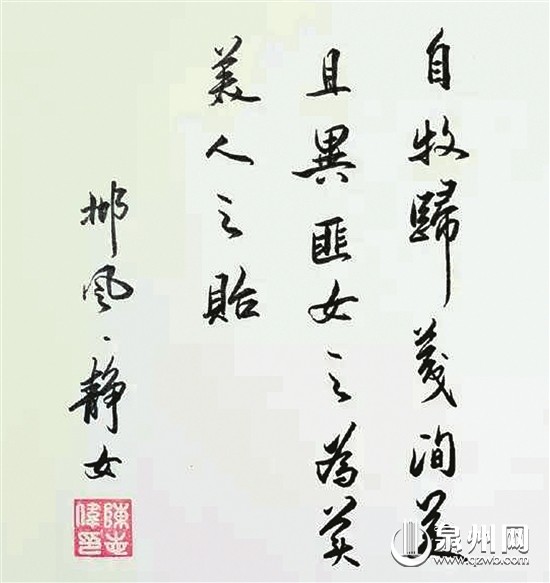 自牧歸荑洵美
且異匪女之為美
美人之貽
邶风·静女
陳志偉印
泉州网
www.qzwb.com